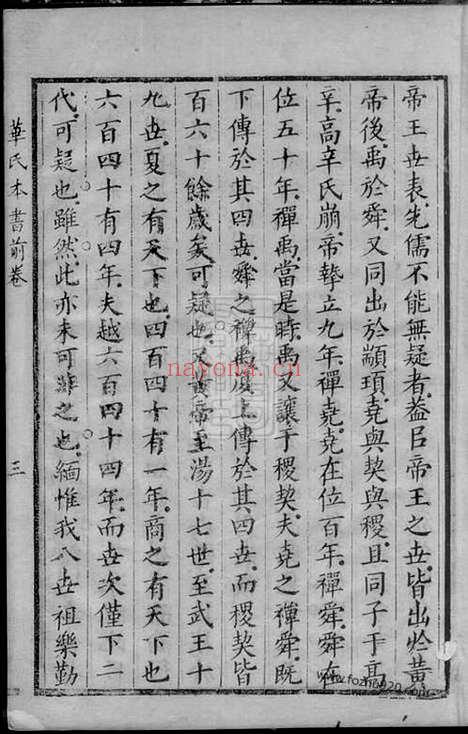 帝王世表先儒不能無疑者蓋曰帝王之世皆出於黃
帝後禹於舜又同出於顓頊堯與契與稷且同子于高
辛高辛氏崩帝摯立九年禪堯堯在位百年禪舜舜在
位五十年禪禹當是時禹又讓于稷契夫堯之禪舜既
下傳於其四世舜之禪禹復上傳於其四世而稷契皆
百六十餘歲矣可疑也又舊帝王湯十七世至武王十
九世夏之有天下也四百四十有一年商之有天下也
六百四十有四年夫越六百四十四年而世次僅下二
代可疑也雖然此亦未可非之也緬惟我八世祖樂勤
華氏本書前卷
三
nayona.cn
www.fozhu920.com